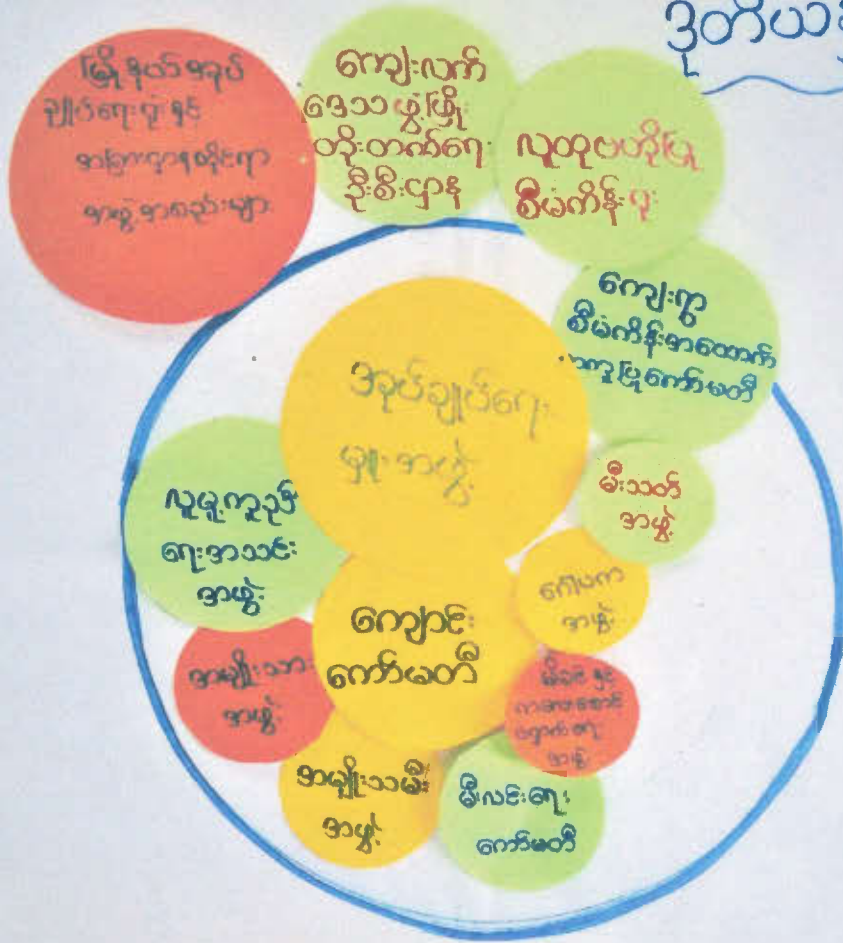 ဒုတိယ
မြို့နယ်အုပ်
ချုပ်ရေးမှူးနှင့်
အခြားဌာနဆိုင်ရာ
အဖွဲ့အစည်းများ
ကျေးလက်
ဒေသဖွံ့ဖြိုး
တိုးတက်ရေး
ဦးစီးဌာန
လူထုဗဟိုပြု
စီမံကိန်း
ကျေးရွာ
စီမံကိန်းအထောက်
အကူပြုကော်မတီ
အုပ်ချုပ်ရေး
မှူးအဖွဲ့
မီးသတ်
အဖွဲ့
လူမှုကူညီ
ရေးအသင်း
အဖွဲ့
ဂေါပက
အဖွဲ့
ကျောင်း
ကော်မတီ
အမျိုးသား
အဖွဲ့
မိခင်နှင့်
ကလေးစောင့်
ရှောက်ရေး
အဖွဲ့
အမျိုးသမီး
အဖွဲ့
မီးလင်းရေး
ကော်မတီ